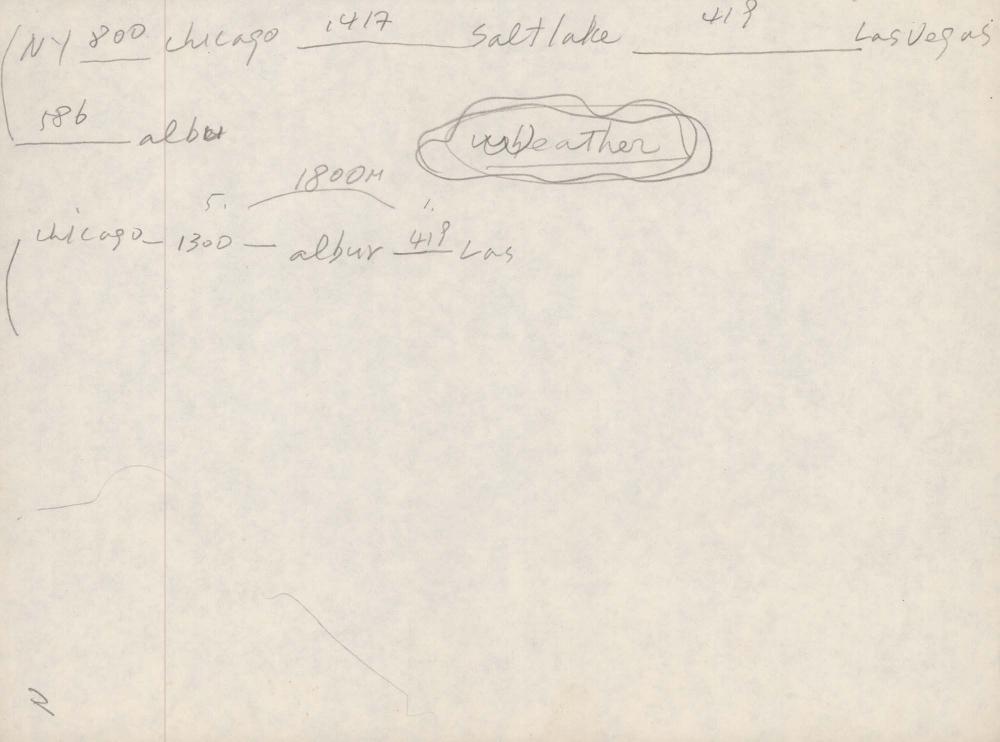 NY 800 chicago 1417 Saltlake 419 Las Vegas
586 albu
Weather
1800M
5. 1.
chicago - 1300 - albur 419 Las